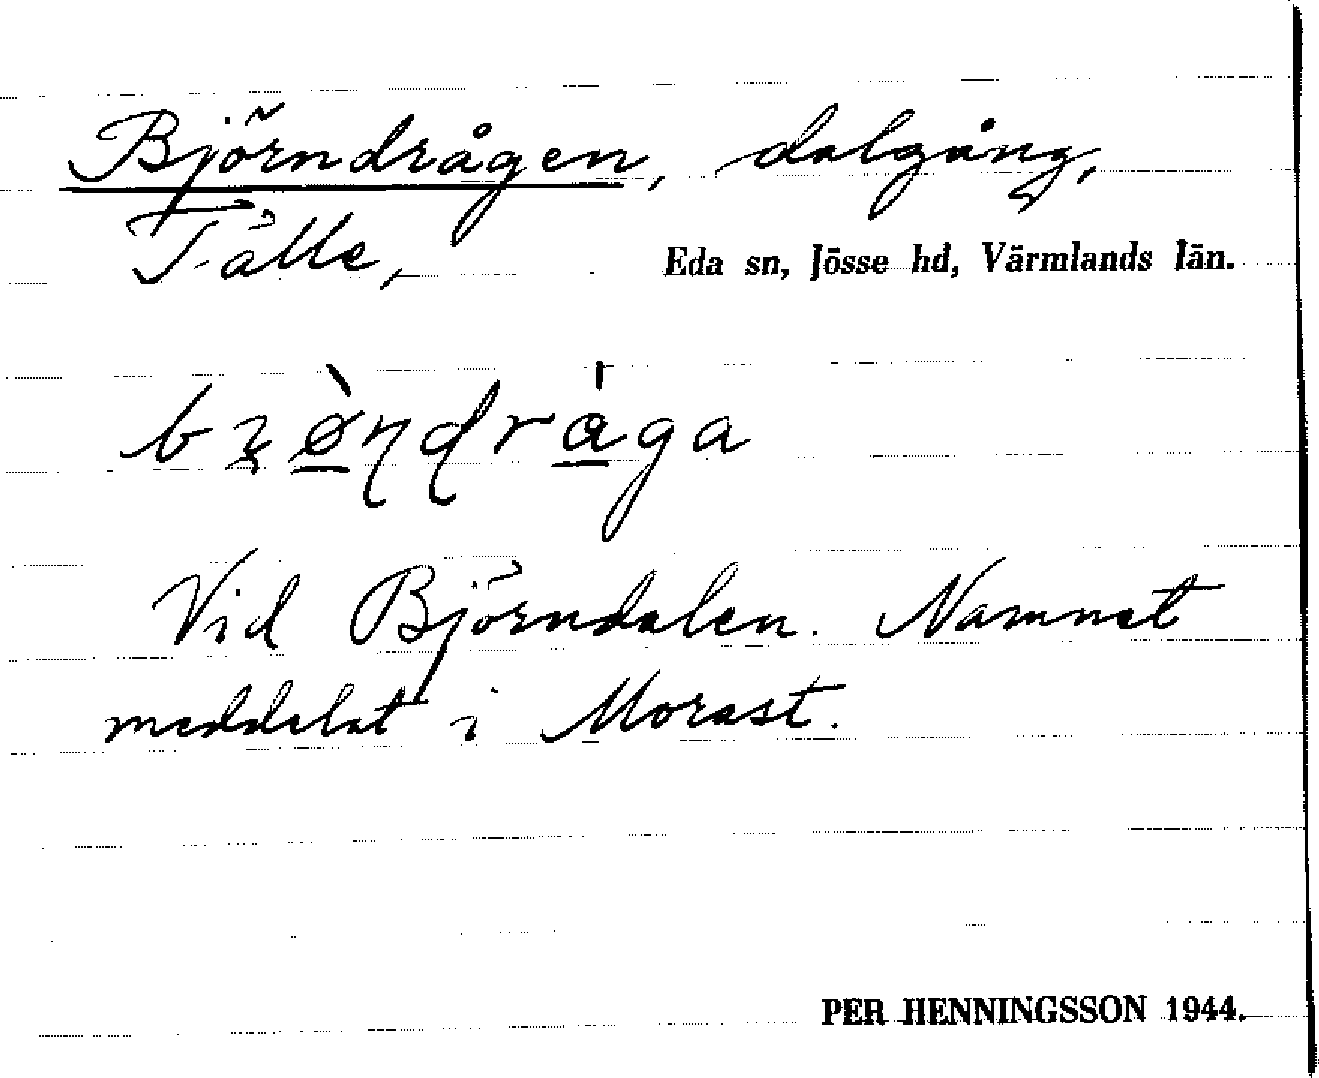 Björndrågen, dalgång,
Tälle, Eda sn, Jösse hd, Värmlands län.
Vid Björndalen. Namnet
meddelat i Morast.
PER HENNINGSSON 1944.